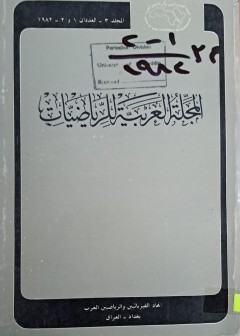 المجلد ٣ - العددان ١ و ٢ - ١٩٨٢
Periodical Division
Univer
Received
المجلة العربية للرياضيات
اتحاد الفيزيائيين والرياضيين العرب
بغداد - العراق